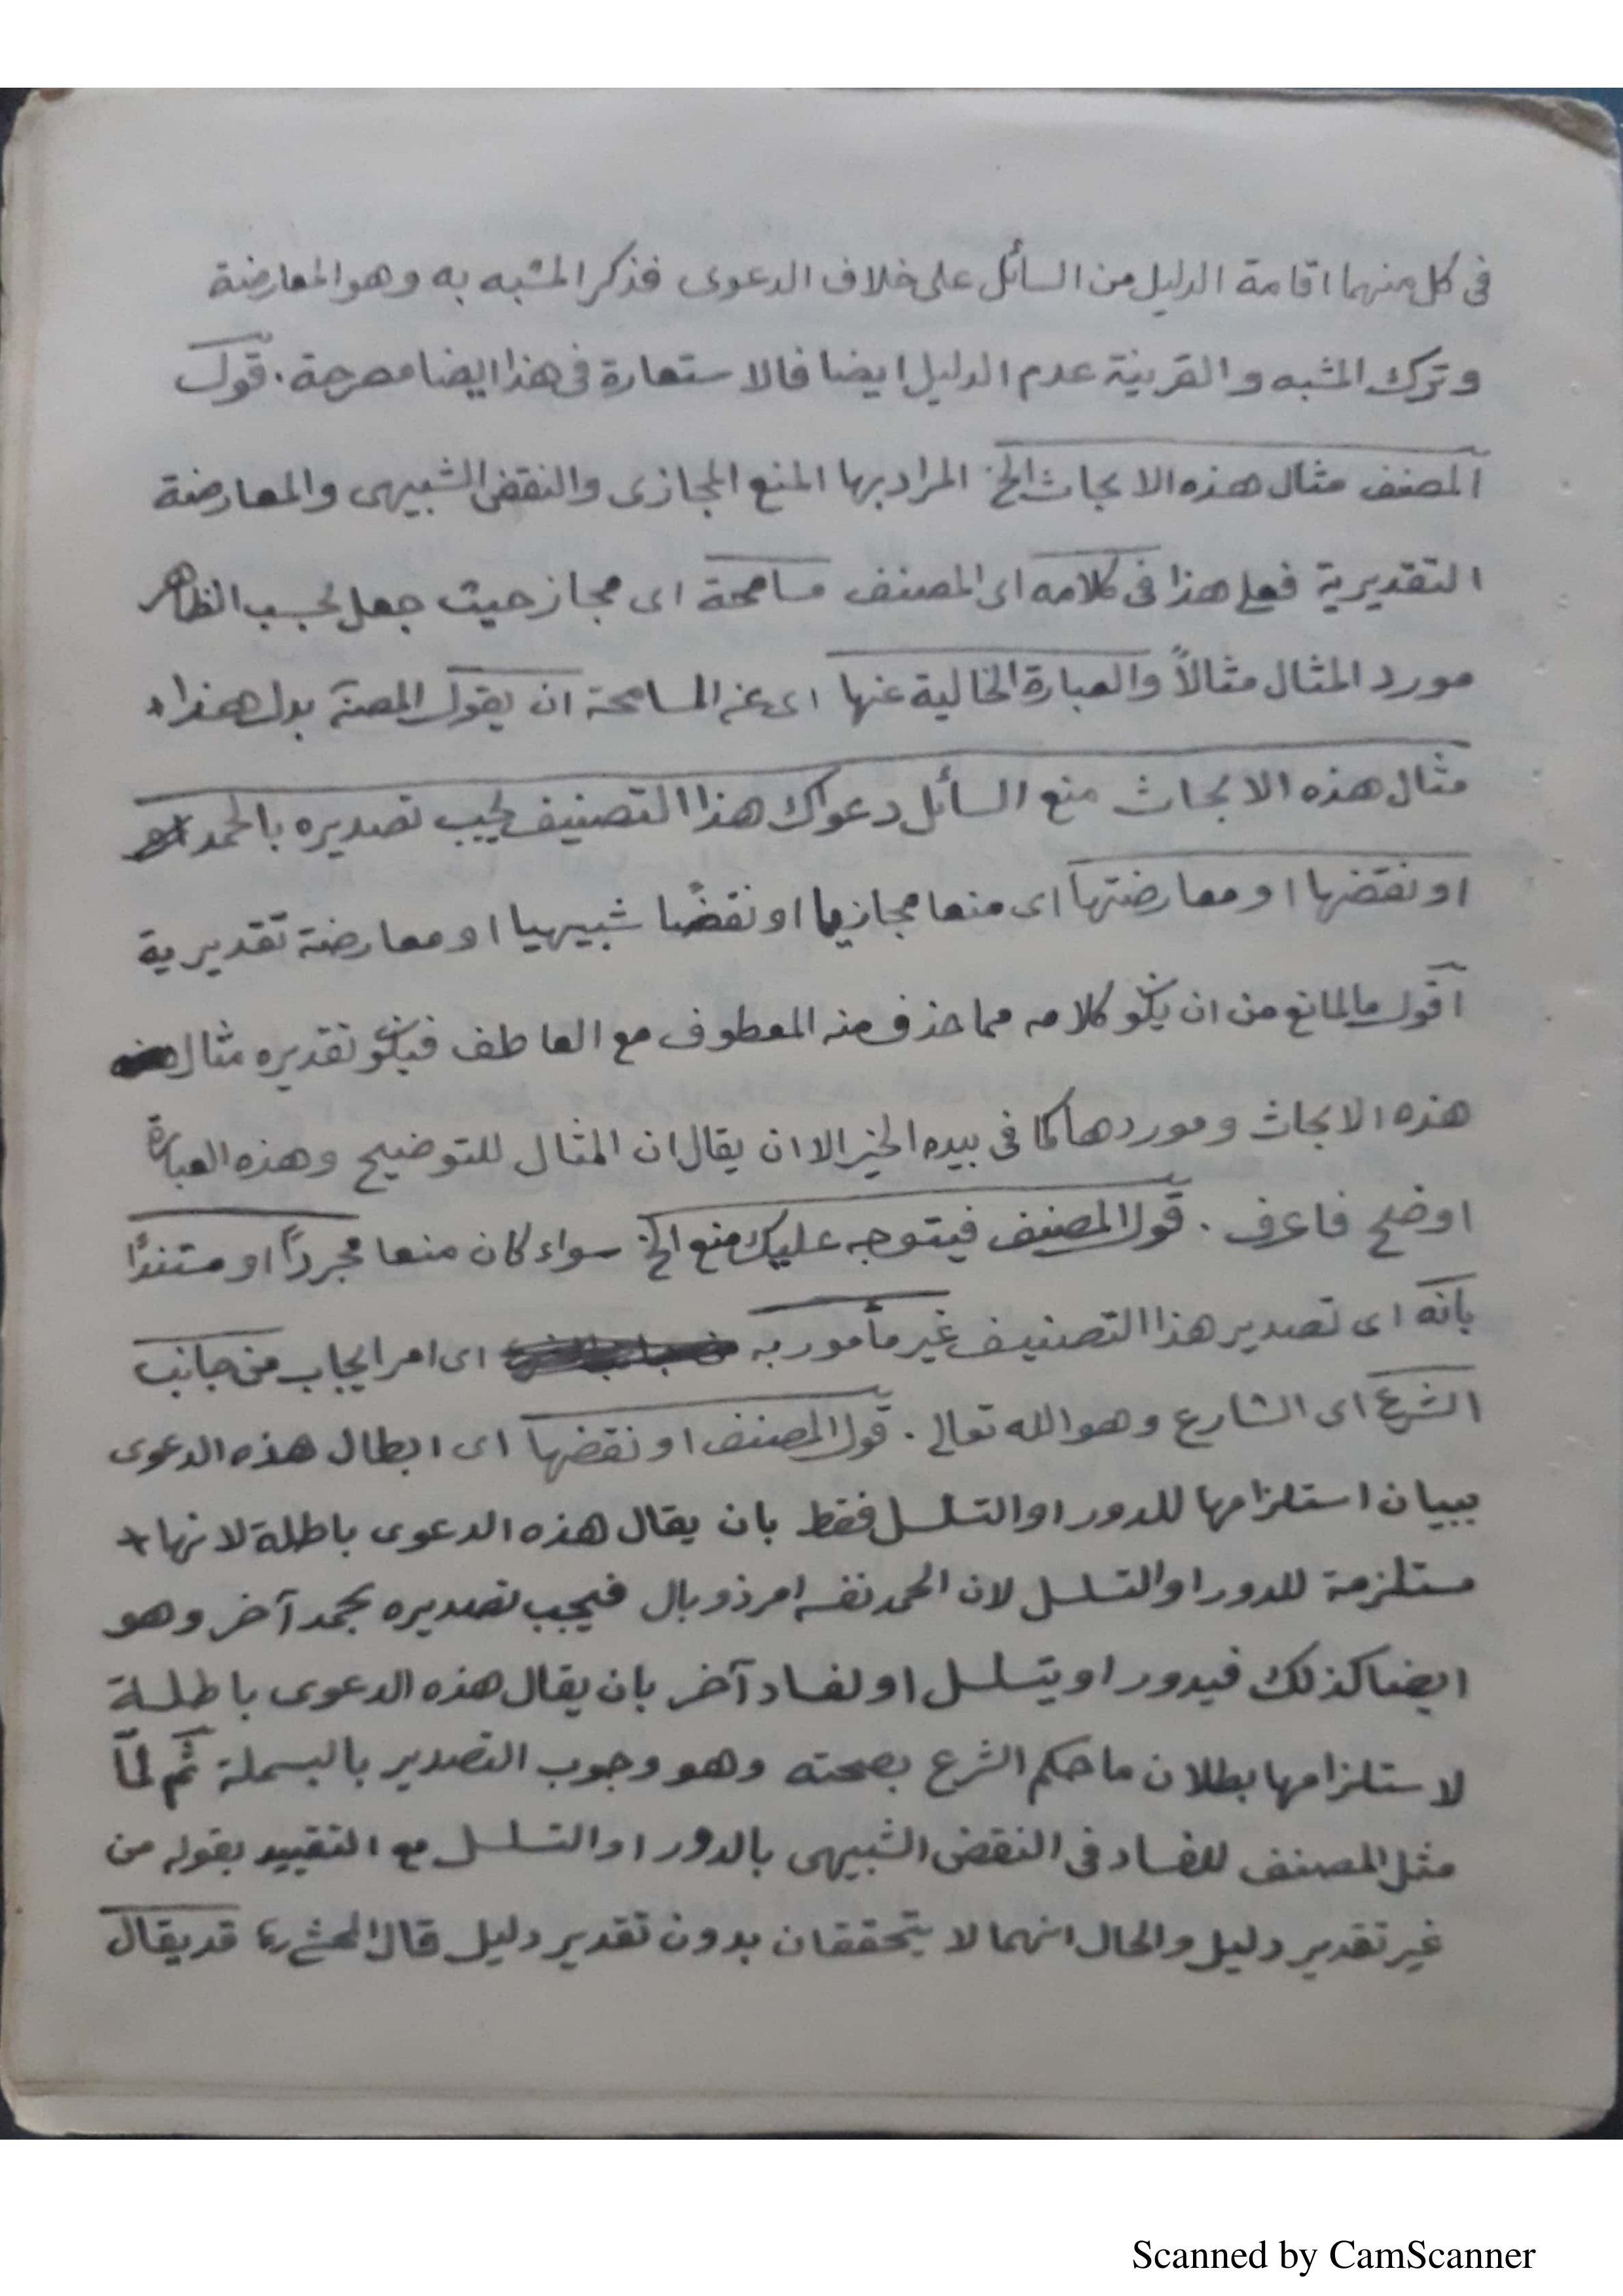 فى كل منهما اقامة الدليل من السائل على خلاف الدعوى فذكر المشبه به وهو المعارضة
وترك المشبه والقرينة عدم الدليل ايضا فالاستعارة فى هذا ايضا مصرحة. قول
المصنف مثال هذه الابحاث الخ المراد بها المنع المجازى والنقض الشبيهى والمعارضة
التقديرية فعلى هذا فى كلامه اى المصنف مسامحة اى مجاز حيث جعل بحسب الظاهر
مورد المثال مثالاً والعبارة الخالية عنها اى عن المسامحة ان يقول المصنف بدل هذا
مثال هذه الابحاث منع السائل دعواك هذا التصنيف يجب تصديره بالحمد
او نقضها او معارضتها اى منعا مجازيا او نقضًا شبيهيا او معارضة تقديرية
اقول ما المانع من ان يكون كلامه مما حذف منه المعطوف مع العاطف فيكون تقديره مثال
هذه الابحاث وموردها كما فى بيده الخير الا ان يقال ان المثال للتوضيح وهذه العبارة
اوضح فاعرف. قول المصنف فيتوجه عليك منع الخ سواء كان منعا مجرداً او مستنداً
بانه اى تصدير هذا التصنيف غير مأمور به اى امر ايجاب من جانب
الشرع اى الشارع وهو الله تعالى. قول المصنف او نقضها اى ابطال هذه الدعوى
ببيان استلزامها للدور او التسلسل فقط بان يقال هذه الدعوى باطلة لانها
مستلزمة للدور او التسلسل لان الحمد نفسه امر ذو بال فيجب تصديره بحمد آخر وهو
ايضا كذلك فيدور او يتسلسل او لفساد آخر بان يقال هذه الدعوى باطلة
لاستلزامها بطلان ما حكم الشرع بصحته وهو وجوب التصدير بالبسملة ثم لمّا
مثل المصنف للفساد فى النقض الشبيهى بالدور او التسلسل مع التقييد بقوله من
غير تقدير دليل والحال انهما لا يتحققان بدون تقدير دليل قال المحشى قد يقال
Scanned by CamScanner